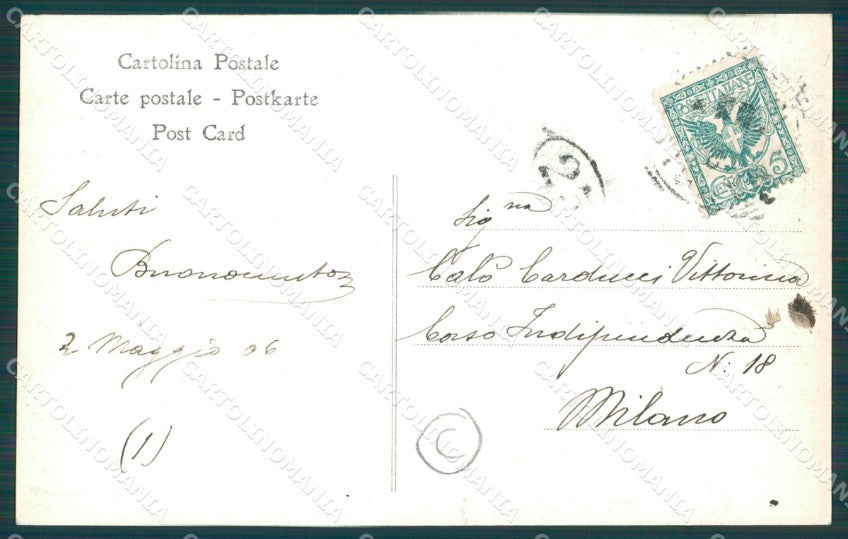 Cartolina Postale
Carte postale - Postkarte
Post Card
Saluti
Buonocunto
2 Maggio 06
(1)
POSTE ITALIANE
5
Sig na
Calò Carducci Vittorina
Corso Indipendenza
N: 18
Milano
C
CARTOLINOMANIA